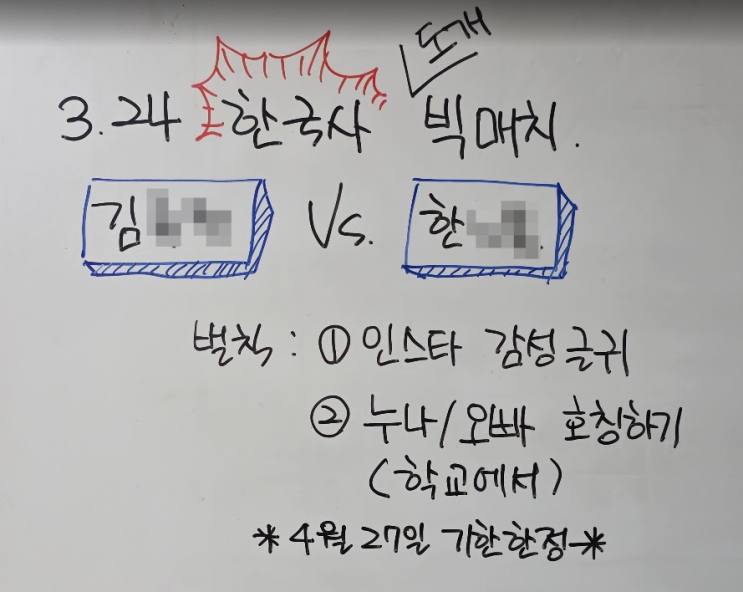 도개
3.24 한국사 빅매치.
김 Vs. 한
벌칙 : ① 인스타 감성글귀
② 누나/오빠 호칭하기
(학교에서)
*4월 27일 기한한정*